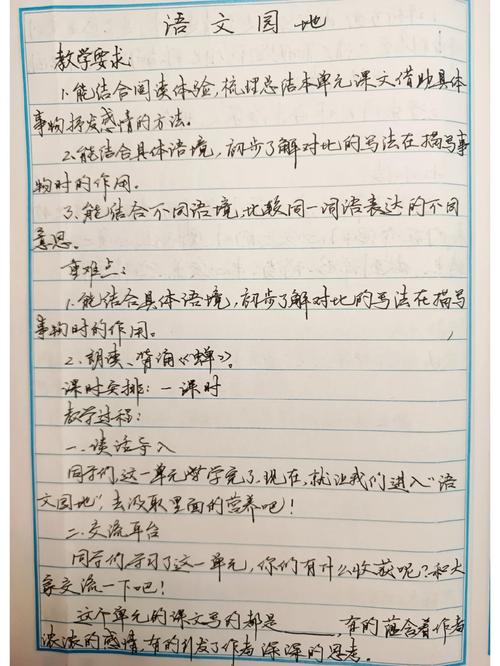 语文园地
教学要求:
1.能结合阅读体验,梳理总结本单元课文借助具体
事物抒发感情的方法。
2.能结合具体语境,初步了解对比的写法在描写事
物时的作用。
3.能结合不同语境,比较同一词语表达的不同
意思。
重难点:
1.能结合具体语境,初步了解对比的写法在描写
事物时的作用。
2.朗读、背诵《蝉》。
课时安排:一课时
教学过程:
一.谈话导入
同学们,这一单元学完了.现在,就让我们进入“语
文园地”,去汲取里面的营养吧!
二.交流平台
同学们学习了这一单元,你们有什么收获呢?和大
家交流一下吧!
这个单元的课文写的都是____,有的蕴含着作者
浓浓的感情,有的引发了作者深深的思考。